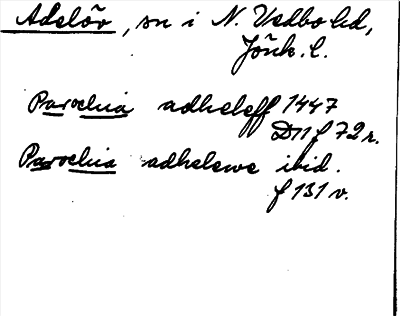 Adelöv, sn i N. Vedbo hd,
Jönk. l.
Parochia adheleff 1447
D11 f 72 r.
Parochia adhelewe ibid.
f 131 v.